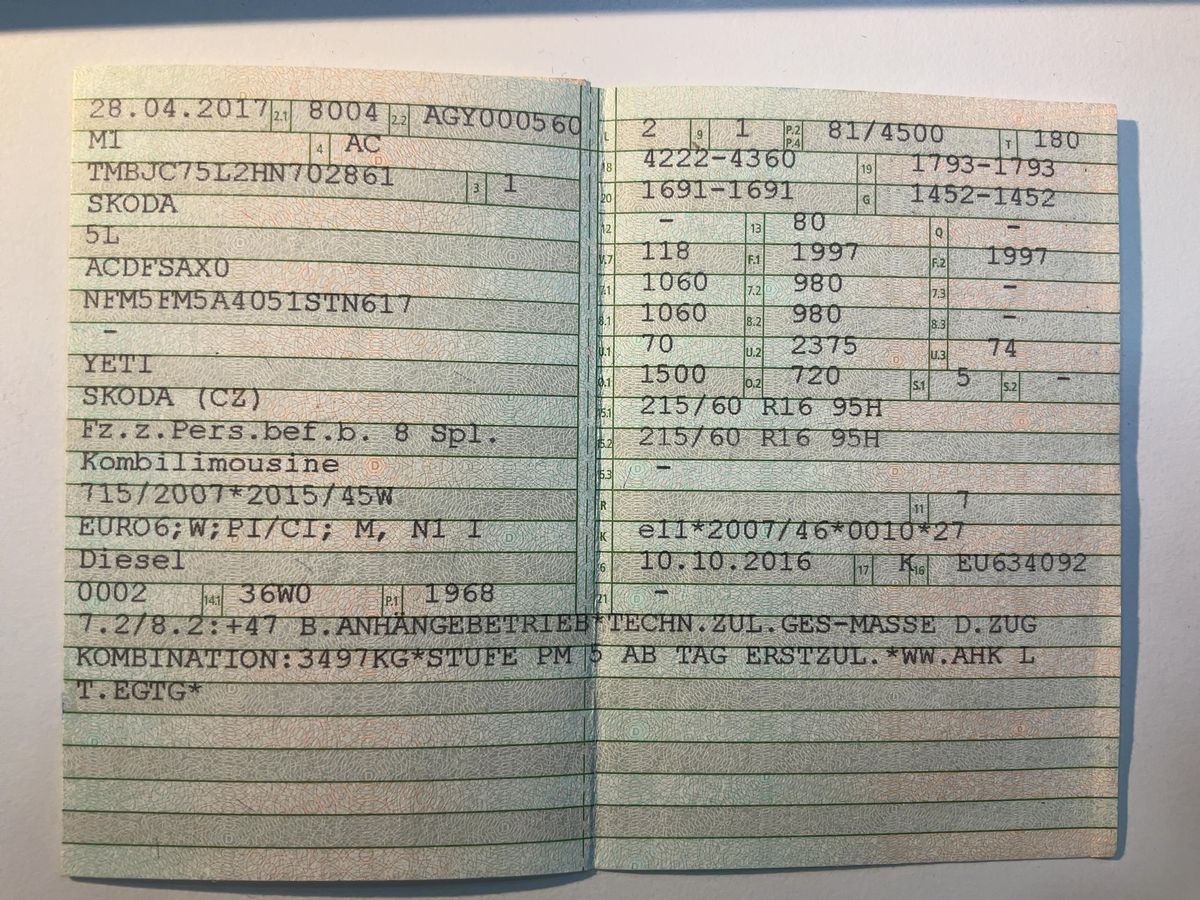 28.04.2017 2.1 8004 2.2 AGY000560
M1 4 AC
TMBJC75L2HN702861 3 1
SKODA
5L
ACDFSAX0
NFM5FM5A4051STN617
–
YETI
SKODA (CZ)
Fz.z.Pers.bef.b. 8 Spl.
Kombilimousine
715/2007*2015/45W
EURO6;W;PI/CI; M, N1 I
Diesel
0002 14.1 36W0 P.1 1968
L 2 9 1 P.2 P.4 81/4500 T 180
18 4222-4360 19 1793-1793
20 1691-1691 G 1452-1452
12 – 13 80 Q –
V.7 118 F.1 1997 F.2 1997
7.1 1060 7.2 980 7.3 –
8.1 1060 8.2 980 8.3 –
U.1 70 U.2 2375 U.3 74
O.1 1500 O.2 720 S.1 5 S.2 –
15.1 215/60 R16 95H
15.2 215/60 R16 95H
15.3 –
R 11 7
K e11*2007/46*0010*27
6 10.10.2016 17 K 16 EU634092
21 –
7.2/8.2:+47 B.ANHÄNGEBETRIEB*TECHN.ZUL.GES-MASSE D.ZUG
KOMBINATION:3497KG*STUFE PM 5 AB TAG ERSTZUL.*WW.AHK L
T.EGTG*